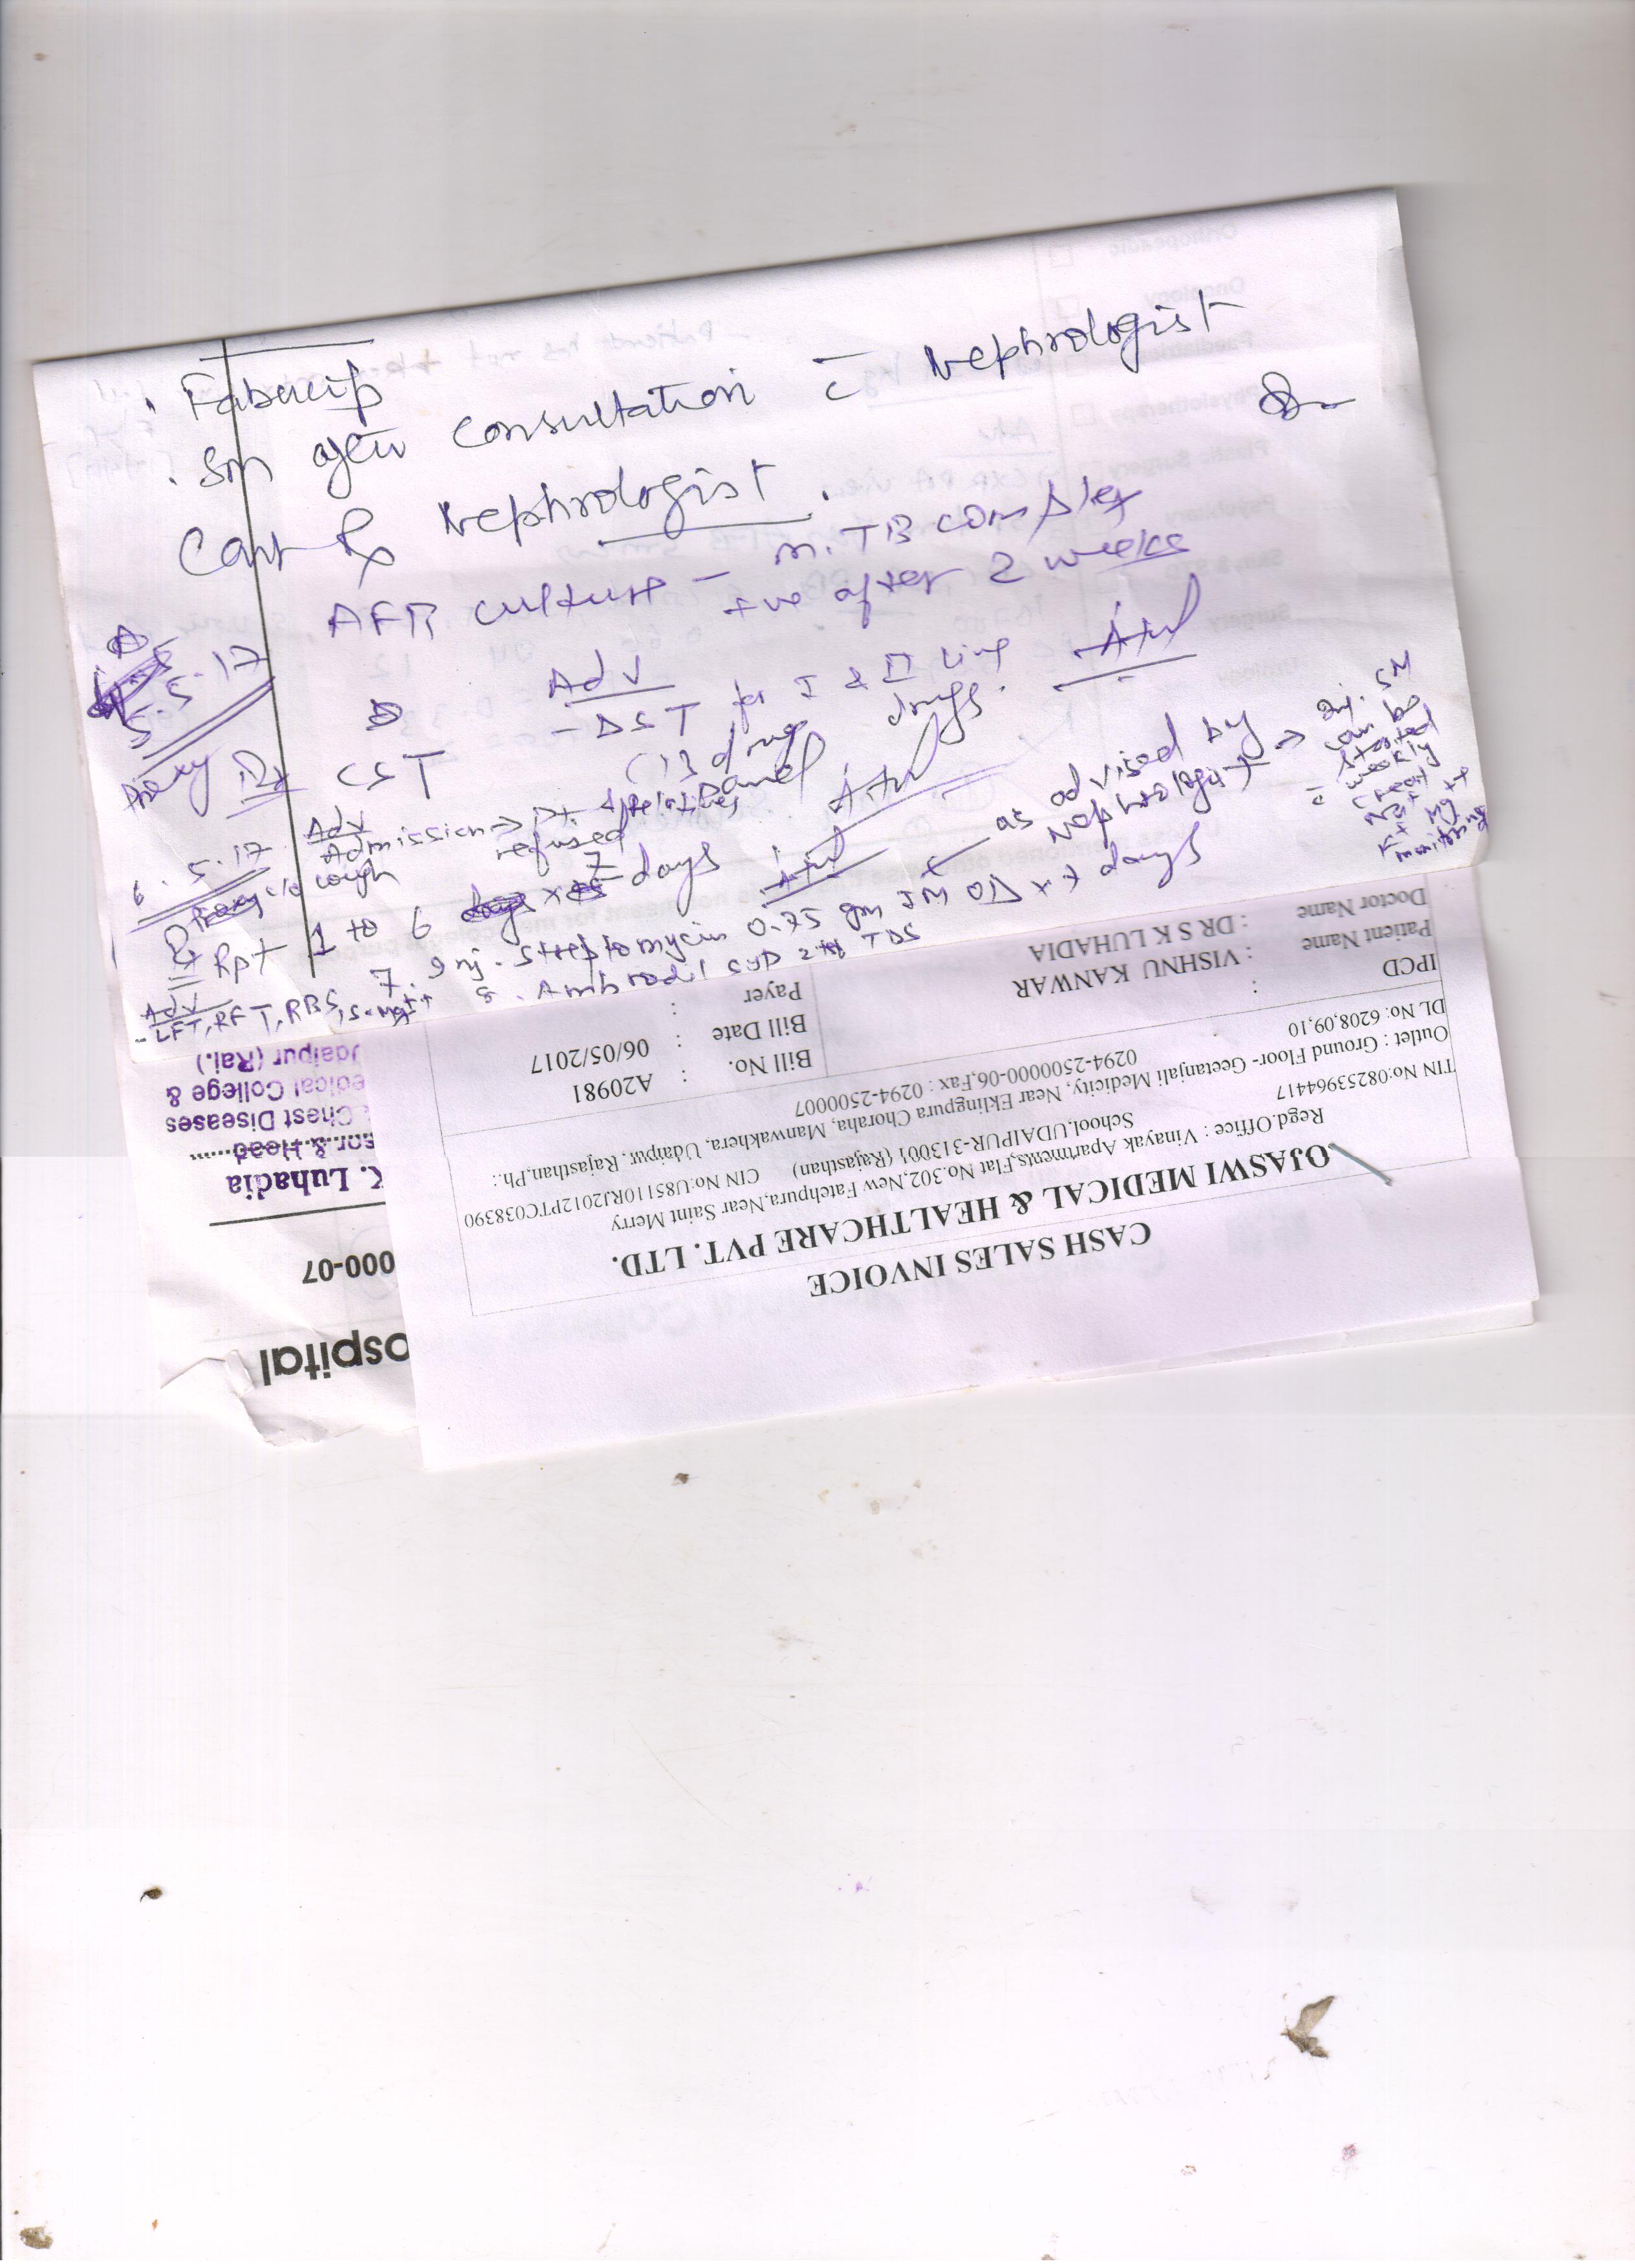 . Fabucip
. Sm after consultation c̄ Nephrologist
Cont Rx Nephrologist.
AFB culture - M.TB complex
+ve after 2 weeks
5.5.17
Adv
- DST for I & II Line
drugs.
(13 drug
panel
Rx CST
6.5.17
Adv
Admission → Pt. & relatives
refused
c/o cough
Rx Rpt 1 to 6 x 7 days
as advised by
Nephrologist → Inj. SM
can be
started
c̄ weekly
creat
K+ Mg++
monitoring
7. Inj. Streptomycin 0.75 gm IM OD x 7 days
8. Ambrodil syp 2 tsf TDS
Adv
- LFT, RFT, RBS, S. Mg++
ospital
000-07
K. Luhadia
sor & Head
Chest Diseases
edical College &
Udaipur (Raj.)
CASH SALES INVOICE
OJASWI MEDICAL & HEALTHCARE PVT. LTD.
Regd.Office : Vinayak Apartments,Flat No.302,New Fatehpura,Near Saint Merry
School,UDAIPUR-313001 (Rajasthan) CIN No:U85110RJ2012PTC038390
TIN No:08253964417
Outlet : Ground Floor- Geetanjali Medicity, Near Eklingpura Choraha, Manwakhera, Udaipur, Rajasthan,Ph.:
0294-2500000-06,Fax : 0294-2500007
DL No: 6208,09,10
IPCD :
Patient Name : VISHNU KANWAR
Doctor Name : DR S K LUHADIA
Bill No. : A20981
Bill Date : 06/05/2017
Payer :